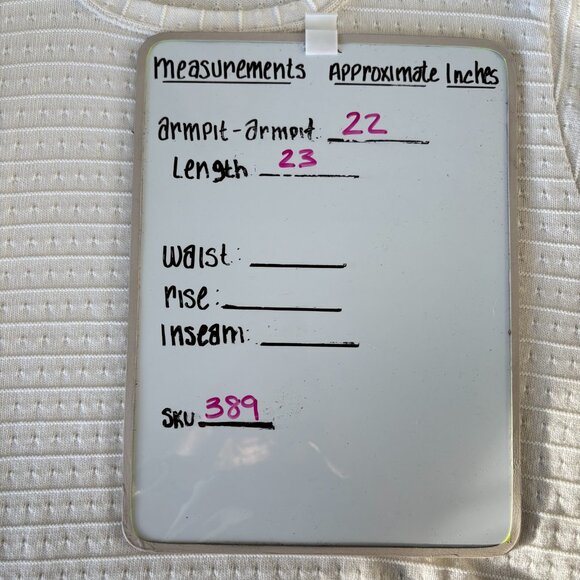 measurements Approximate Inches
armpit-armpit: 22
Length 23
waist:
rise:
inseam:
SKU 389